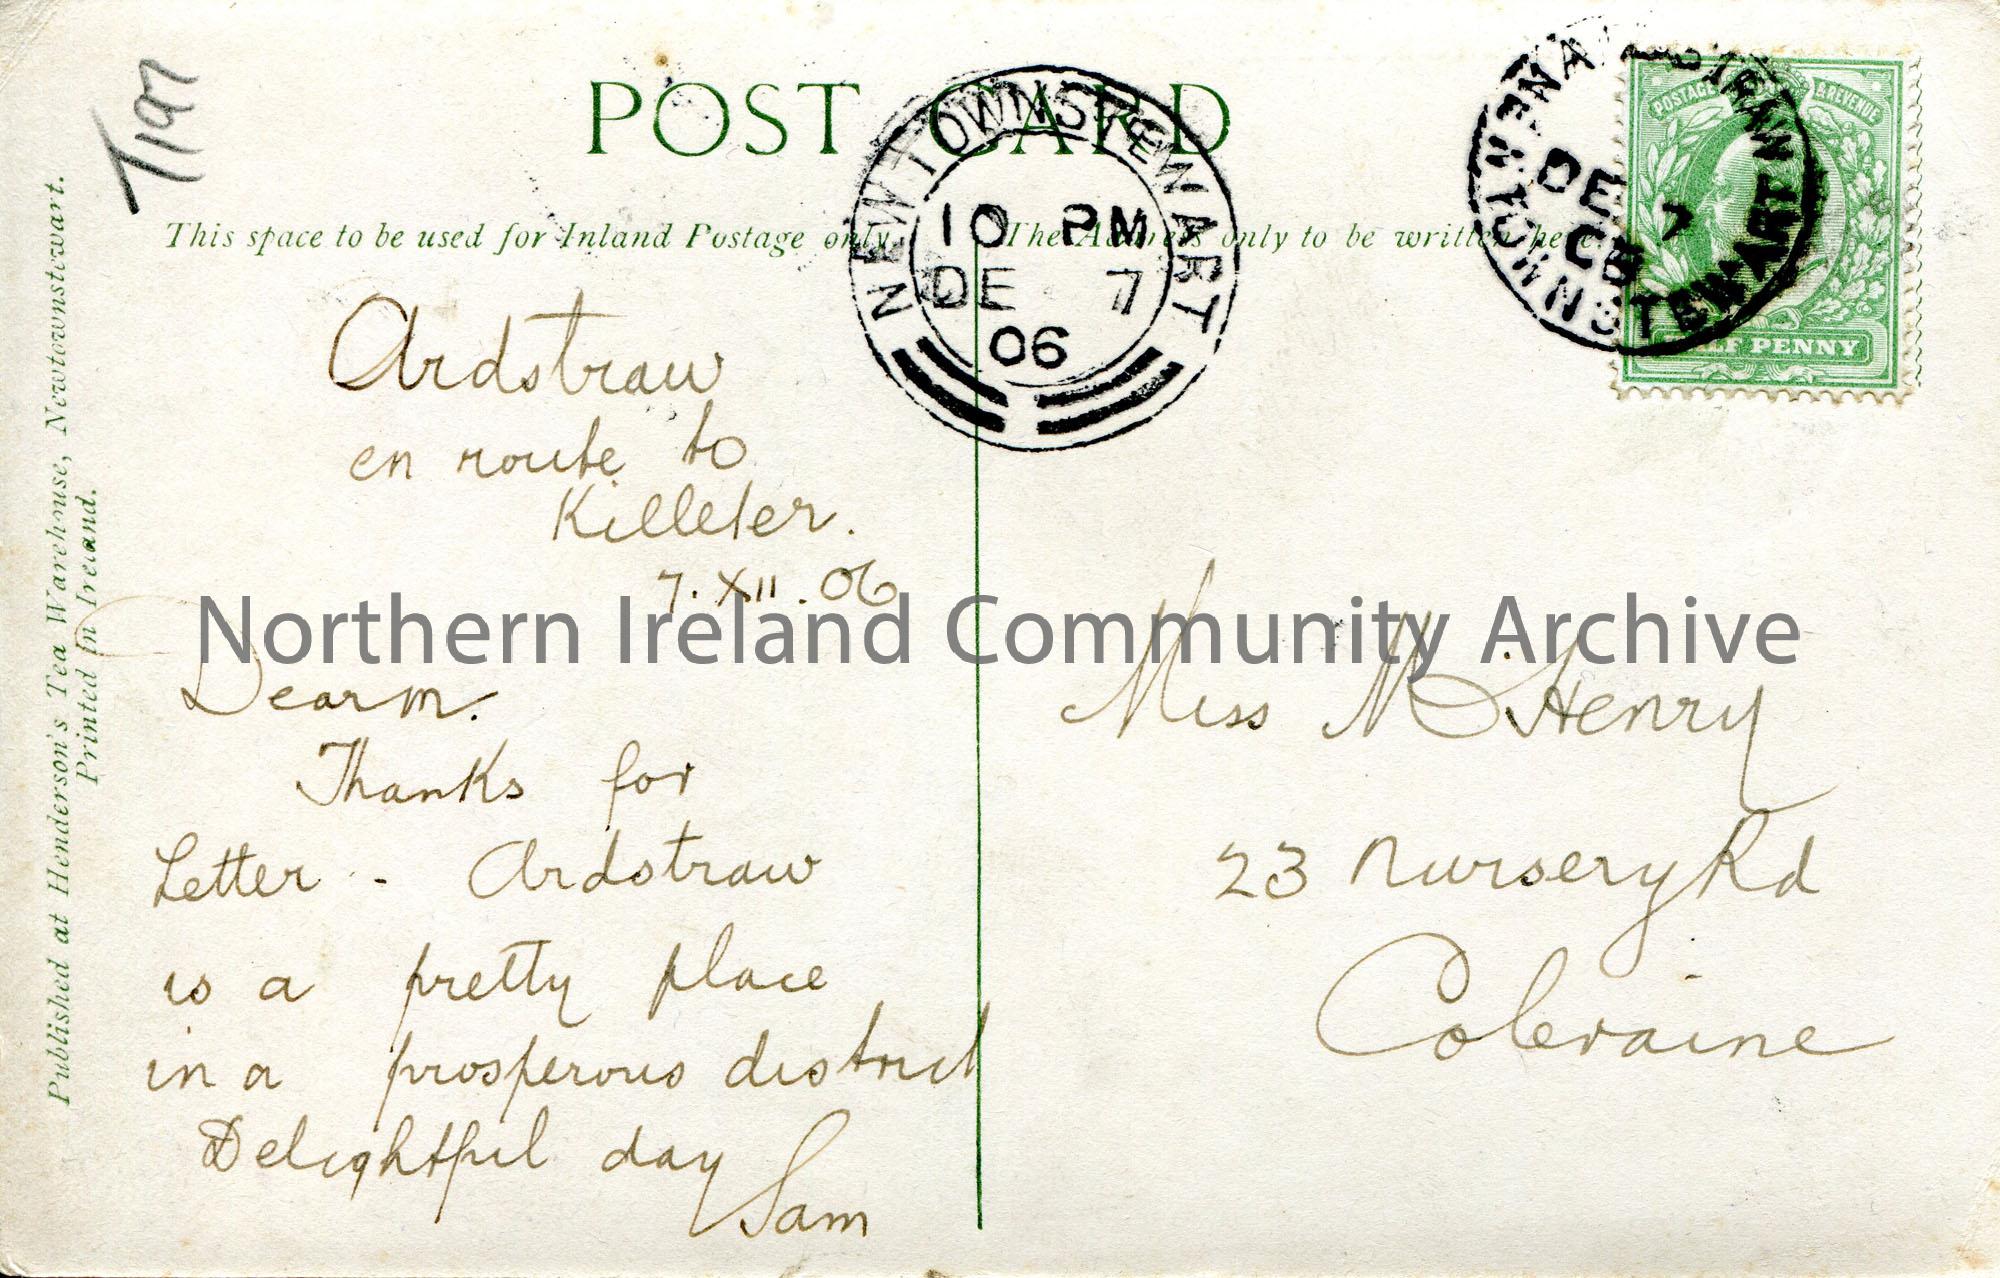 T197
POST CARD
NEWTOWNSTEWART
10 PM
DE 7
06
POSTAGE & REVENUE
HALF PENNY
NEWTOWNSTEWART
DE 7
This space to be used for Inland Postage only.
The Address only to be written here
Published at Henderson's Tea Warehouse, Newtownstewart.
Printed in Ireland.
Ardstraw
en route to
Killeter.
7.XII.06
Northern Ireland Community Archive
Dear M.
Thanks for
Letter - Ardstraw
is a pretty place
in a prosperous district
Delightful day
Sam
Miss McHenry
23 Nursery Rd
Coleraine